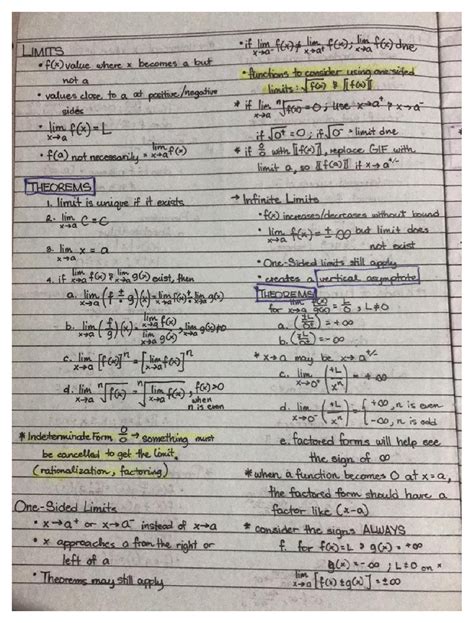 LIMITS
• f(x) value where x becomes a but
not a
• values close to a at positive/negative
sides
• lim x→a f(x) = L
• f(a) not necessarily = lim x→a f(x)
THEOREMS
1. limit is unique if it exists
2. lim x→a C = C
3. lim x→a x = a
4. if lim x→a f(x) & lim x→a g(x) exist, then
a. lim x→a (f ± g)(x) = lim x→a f(x) ± lim x→a g(x)
b. lim x→a (f/g)(x) = lim x→a f(x) / lim x→a g(x), lim x→a g(x) ≠ 0
c. lim x→a [f(x)]ⁿ = [lim x→a f(x)]ⁿ
d. lim x→a ⁿ√f(x) = ⁿ√lim x→a f(x), f(x)>0
when
n is even
* Indeterminate Form 0/0 → something must
be cancelled to get the limit.
(rationalization, factoring)
One-Sided Limits
• x→a⁺ or x→a⁻ instead of x→a
• x approaches a from the right or
left of a
• Theorems may still apply
• if lim x→a⁻ f(x) ≠ lim x→a⁺ f(x); lim x→a f(x) dne
• functions to consider using one-sided
limits: √f(x) & ⟦f(x)⟧
* if lim x→a ⁿ√f(x) = 0; use x→a⁺ & x→a⁻
if √0⁺ = 0; if √0⁻ = limit dne
* if 0/0 with ⟦f(x)⟧, replace GIF with
limit a, so ⟦f(a)⟧ if x→a⁺/⁻
→ Infinite Limits
• f(x) increases/decreases without bound
• lim x→a f(x) = ±∞ but limit does
not exist
• One-Sided limits still apply
• creates a vertical asymptote
THEOREMS
for lim x→a f(x)/g(x) = L/0, L≠0
a. = +∞
b. = -∞
* x→a may be x→a⁺/⁻
c. lim x→0⁺ (±L/xⁿ) = ±∞
d. lim x→0⁻ (+L/xⁿ) = { +∞, n is even
-∞, n is odd
e. factored forms will help see
the sign of ∞
* when a function becomes 0 at x=a,
the factored form should have a
factor like (x-a)
* consider the signs ALWAYS
f. for f(x) = L & g(x) = +∞
g(x) = -∞, L≠0
lim x→a [f(x) ± g(x)] = ±∞